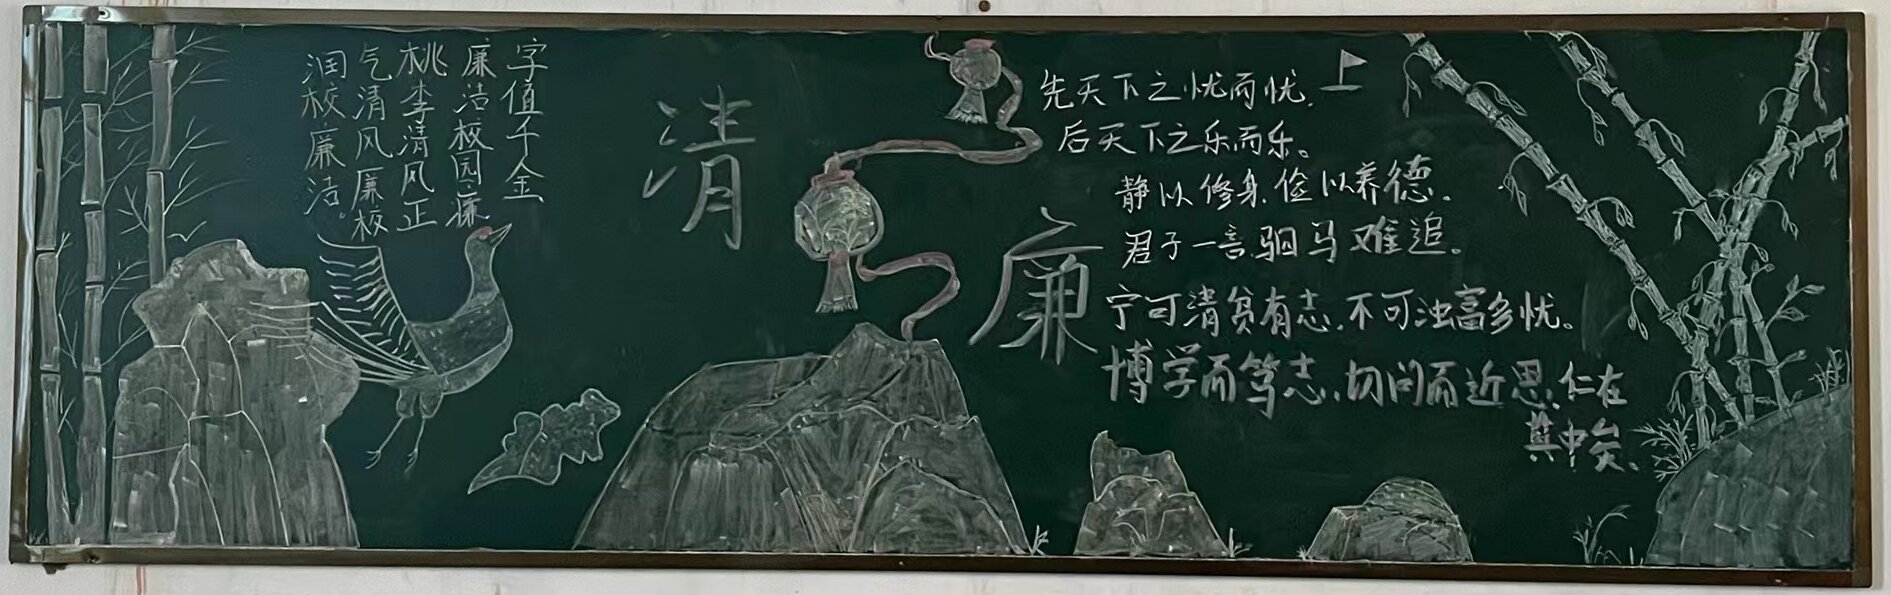 字值千金
廉洁校园:廉
桃李清风正
气清风廉校
润校廉洁。
清
廉
先天下之忧而忧,
后天下之乐而乐。
静以修身,俭以养德。
君子一言,驷马难追。
宁可清贫有志,不可浊富多忧。
博学而笃志,切问而近思,仁在
其中矣.